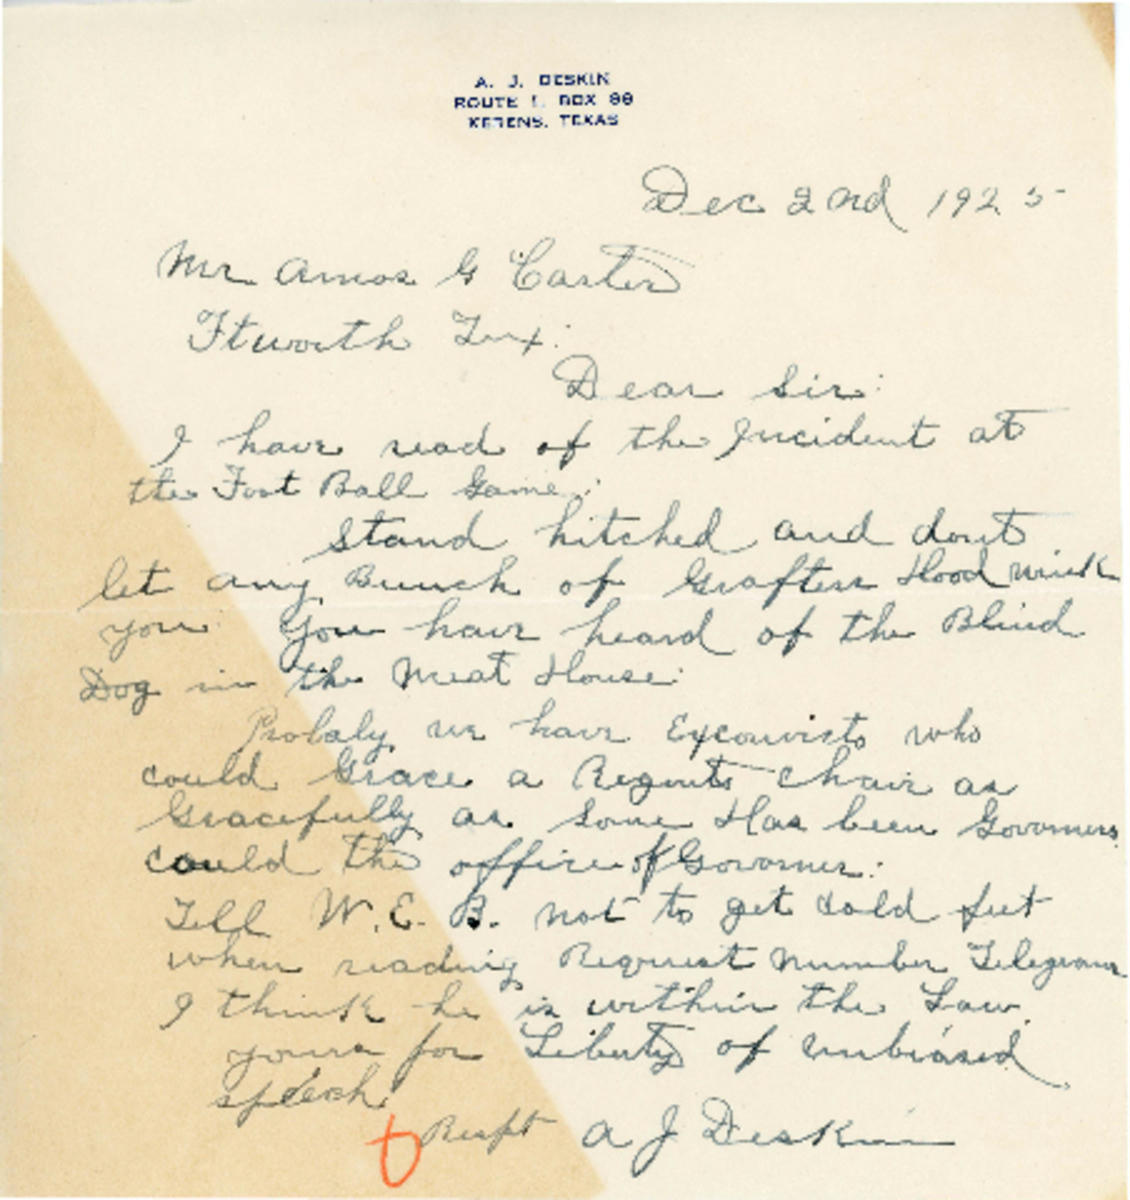 A. J. DESKIN
ROUTE 1, BOX 99
KERENS, TEXAS
Dec 2nd 1925
Mr Amos G Carter
Ftworth Tex.
Dear Sir:
I have read of the Incident at
the Foot Ball Game:
Stand hitched and dont
let any Bunch of Grafters Hood wink
you. You have heard of the Blind
Dog in the Meat House:
Probaly we have Exconvicts who
could Grace a Regents chair as
Gracefully as Some Has been Governers
could the office of Governer:
Tell W. E. B. not to get cold feet
when reading Request Number Telegrams
I think he is within the Law.
yours for Liberty of unbiased
speech
Respt A J Deskin